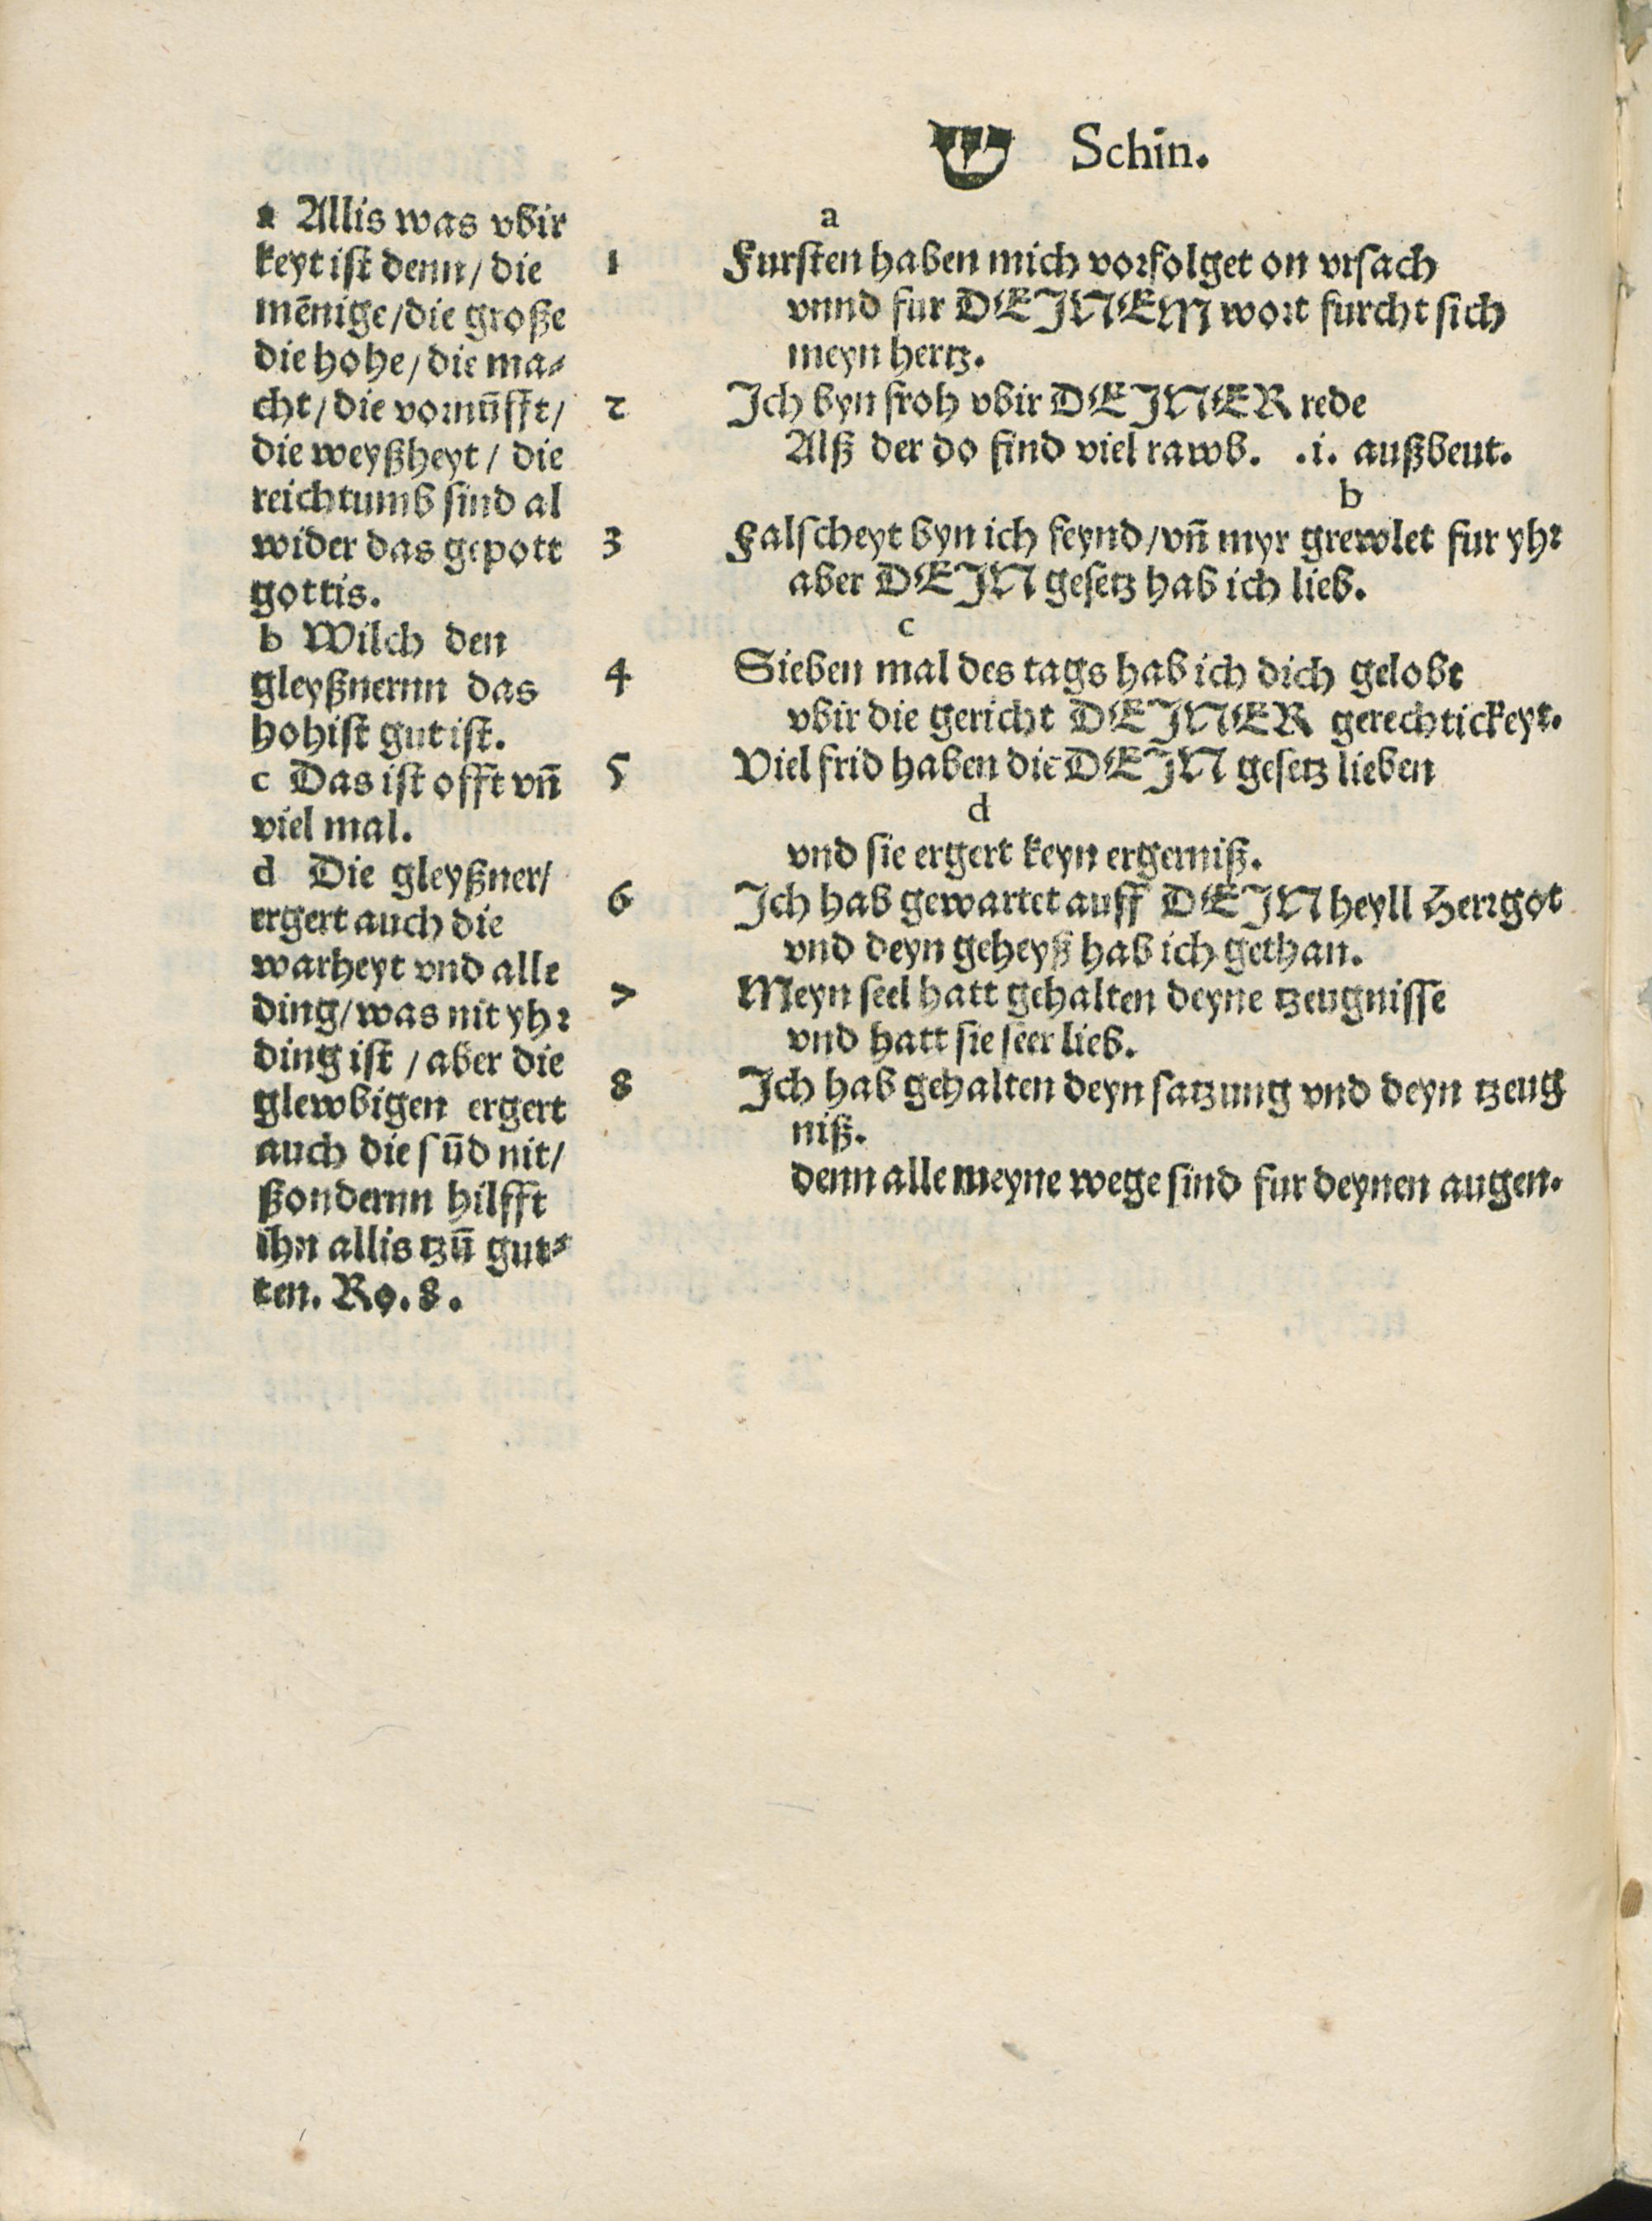 ש Schin.
a Allis was vbir
keyt ist denn/ die
mēnige/die große
die hohe/ die ma⸗
cht/ die vornūfft/
die weyßheyt/ die
reichtumb sind al
wider das gepott
gottis.
b Wilch den
gleyßnernn das
hohist gut ist.
c Das ist offt vn̄
viel mal.
d Die gleyßner/
ergert auch die
warheyt vnd alle
ding/was nit yhr
ding ist / aber die
glewbigen ergert
auch die sūd nit/
ßondernn hilfft
ihn allis tzū gut⸗
ten. Ro. 8.
a
1 Fursten haben mich vorfolget on vrsach
vnnd fur DEINEM wort furcht sich
meyn hertz.
2 Ich byn froh vbir DEINER rede
Alß der do find viel rawb. .i. außbeut.
b
3 Falscheyt byn ich feynd/vn̄ myr grewlet fur yhr
aber DEIN gesetz hab ich lieb.
c
4 Sieben mal des tags hab ich dich gelobt
vbir die gericht DEINER gerechtickeyt.
5 Viel frid haben die DEIN gesetz lieben
d
vnd sie ergert keyn ergerniß.
6 Ich hab gewartet auff DEIN heyll Herrgot
vnd deyn geheyß hab ich gethan.
7 Meyn seel hatt gehalten deyne tzeugnisse
vnd hatt sie seer lieb.
8 Ich hab gehalten deyn satzung vnd deyn tzeug
niß.
denn alle meyne wege sind fur deynen augen.